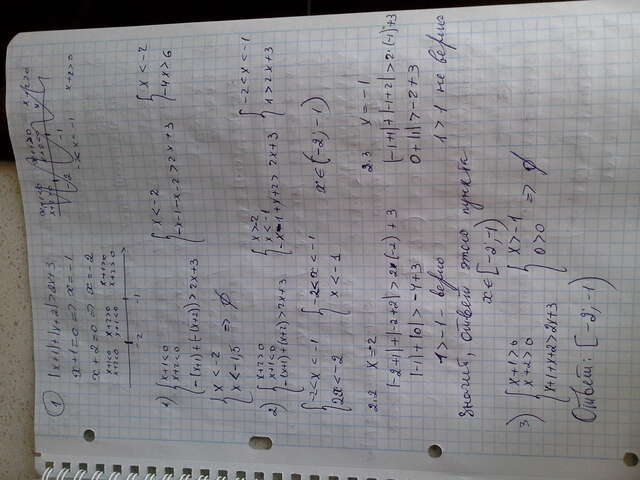 ① |x+1|+|x+2|>2x+3
x+1=0 => x=-1
x+2=0 => x=-2
x+1<0 x+2<0
x+2>0 x+1<0
x+1>0 x+2>0
-2 -1
1) { x+1<0 x+2<0 -(x+1)+(-(x+2))>2x+3
{ x<-2 -x-1-x-2>2x+3
{ x<-2 -4x>6
{ x<-2 x<-1,5 => ∅
2) { x+2>0 x+1<0 -(x+1)+(x+2)>2x+3
{ x>-2 x<-1 -x-1+x+2>2x+3
{ -2<x<-1 1>2x+3
{ -2<x<-1 2x<-2
{ -2<x<-1 x<-1
x∈(-2;-1)
2.2 x=-2
|-2+1|+|-2+2|>2·(-2)+3
|-1|+|0|>-4+3
1>-1 - верно
2.3 x=-1
|-1+1|+|-1+2|>2·(-1)+3
0+|1|>-2+3
1>1 не верно
Значит, ответ этого пункта
x∈[-2;-1)
3) { x+1>0 x+2>0 x+1+x+2>2x+3
{ x>-1 0>0 => ∅
Ответ: [-2;-1)